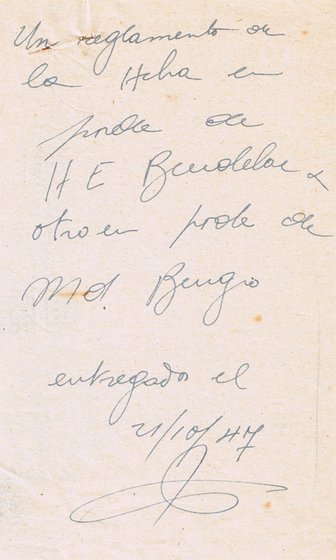 Un reglamento de
la Heha en
poder de
H E Bendelac &
otro en poder de
Md. Bengio
entregados el
21/10/47